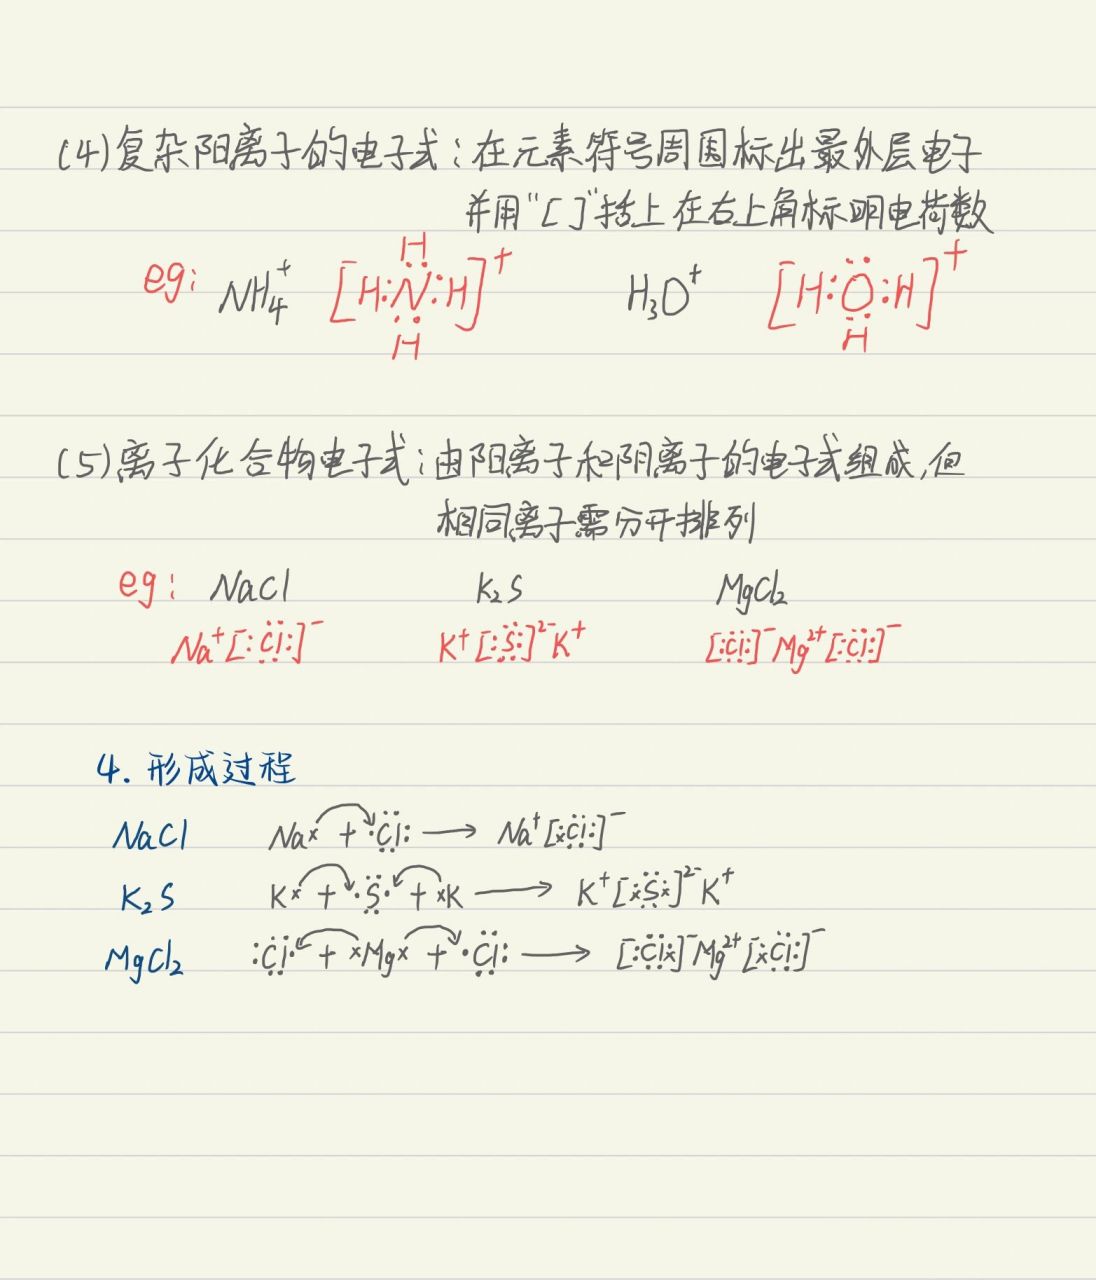 (4)复杂阳离子的电子式:在元素符号周围标出最外层电子
并用“[ ]”括上 在右上角标明电荷数
eg: NH₄⁺ [H:N:H]⁺ H₃O⁺ [H:O:H]⁺
H
H H
(5)离子化合物电子式:由阳离子和阴离子的电子式组成,但
相同离子需分开排列
eg: NaCl K₂S MgCl₂
Na⁺[:Cl:]⁻ K⁺[:S:]²⁻K⁺ [:Cl:]⁻Mg²⁺[:Cl:]⁻
4. 形成过程
NaCl Na× + ·Cl: → Na⁺[×Cl:]⁻
K₂S K× + ·S· + ×K → K⁺[×S×]²⁻K⁺
MgCl₂ :Cl· + ×Mg× + ·Cl: → [:Cl×]⁻Mg²⁺[×Cl:]⁻